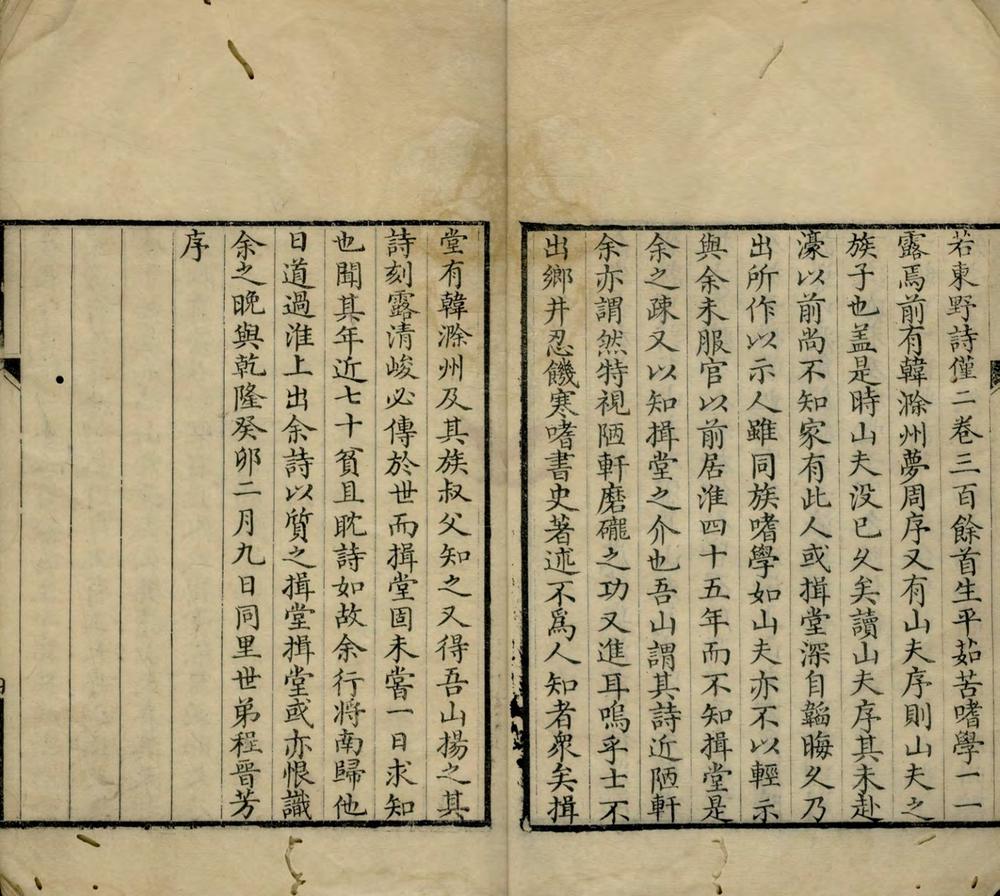 若東野詩僅二卷三百餘首生平茹苦嗜學一一
露焉前有韓滁州夢周序又有山夫序則山夫之
族子也盖是時山夫没已久矣讀山夫序其未赴
濠以前尚不知家有此人或揖堂深自韜晦久乃
出所作以示人雖同族嗜學如山夫亦不以輕示
與余未服官以前居淮四十五年而不知揖堂是
余之疎又以知揖堂之介也吾山謂其詩近陋軒
余亦謂然特視陋軒磨礲之功又進耳嗚乎士不
出鄉井忍饑寒嗜書史著述不爲人知者衆矣揖
堂有韓滁州及其族叔父知之又得吾山揚之其
詩刻露清峻必傳於世而揖堂固未嘗一日求知
也聞其年近七十貧且眈詩如故余行將南歸他
日道過淮上出余詩以質之揖堂揖堂或亦恨識
余之晚與乾隆癸卯二月九日同里世弟程晉芳
序